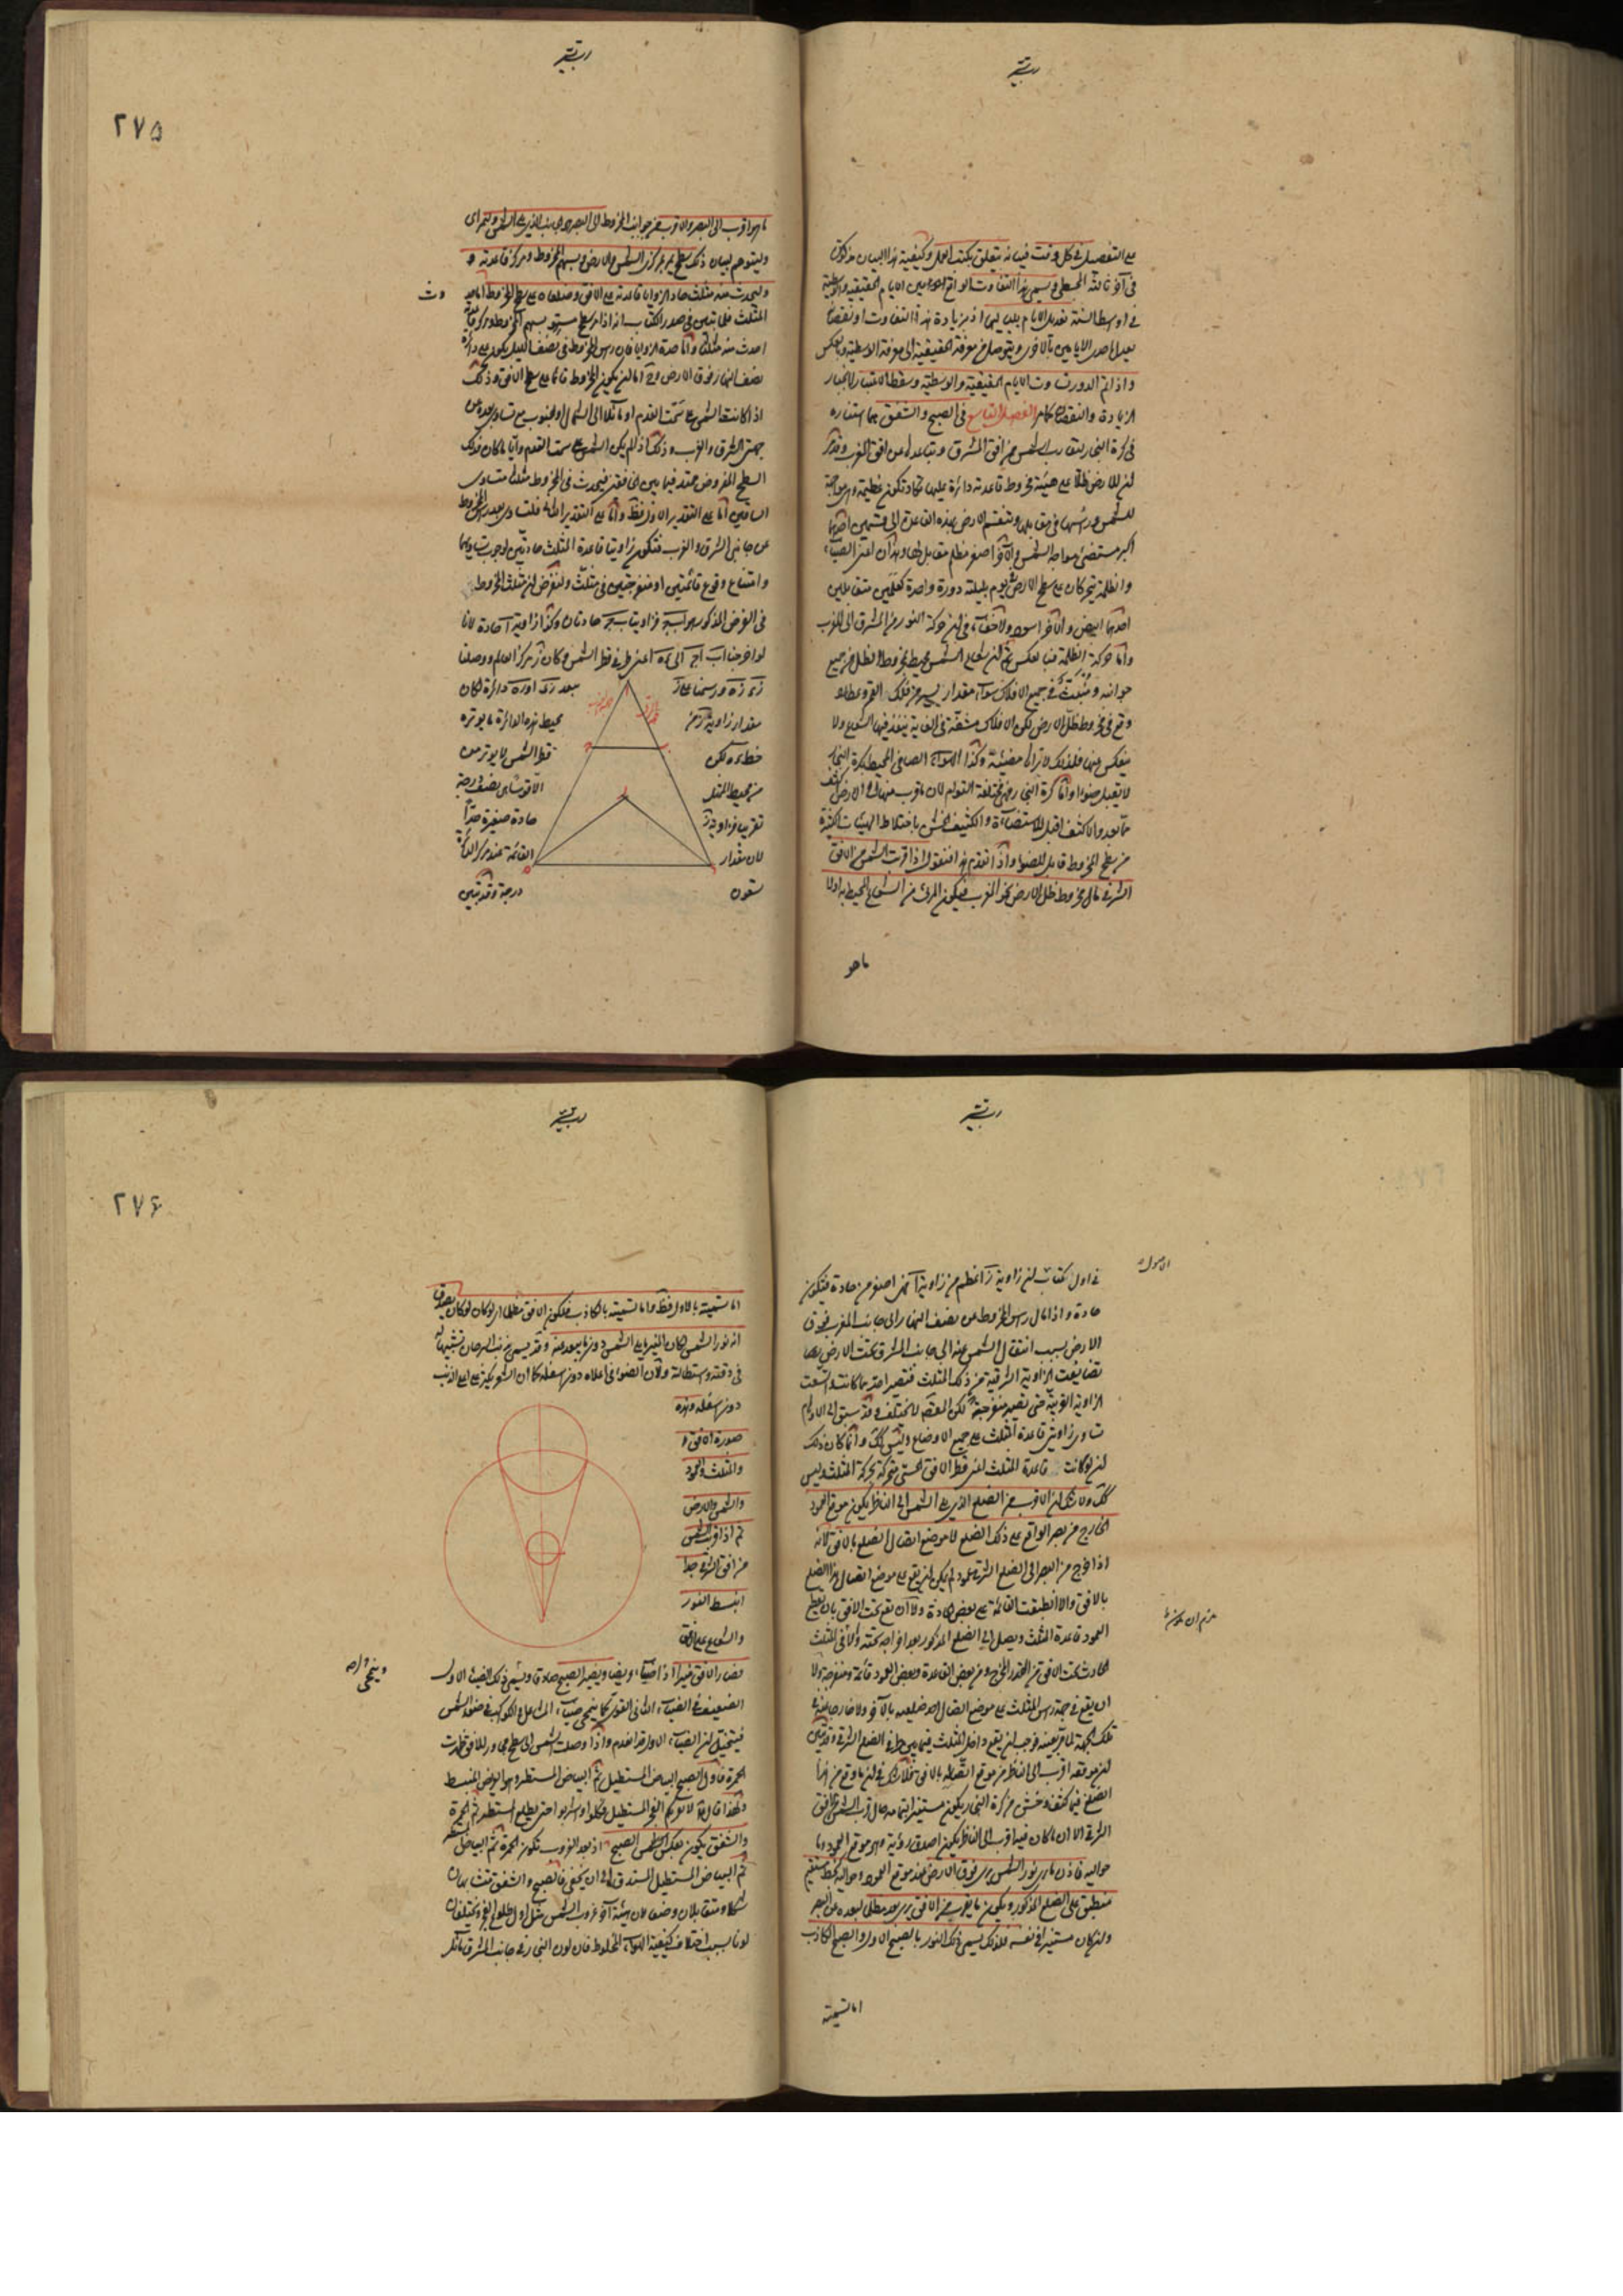 على التفصيل فى كل وقت فيما نه يتعلق بكتب العمل وكيفية هذا البيان مذكورة
فى آخر ثالثة المجسطى ويسمى هذا التفاوت الواقع بين الايام الحقيقية والوسطية
فى اوسط السنة تعديل الايام بلياليها اذ بزيادة هذا التفاوت او نقصانه
يعدل احدى الايامين بالاخرى ويتوصل من معرفة الحقيقية الى معرفة الوسطية وبالعكس
واذا تم الدور تساوت الايام الحقيقية والوسطية وسقط الاعتبار لانجبار
الزيادة والنقصان الفصل التاسع فى الصبح والشفق هما استنارة
فى كرة البخار بتقارب الشمس من افق المشرق وتباعدها عن افق المغرب وقد مر
ان للارض ظلا على هيئة مخروط قاعدته دائرة عليها تكاد تكون عظيمة وهى مواجهة
للشمس ورأسها فى مقابلها وتنقسم الارض بهذه القاعدة الى قسمين احدهما
اكبر مستضئ مواجه الشمس والآخر اصغر مظلم مقابل لها وهذان اعنى الضياء
والظلمة يتحركان على سطح الارض كل يوم بليلته دورة واحدة كعلمين متقابلين
احدهما ابيض والآخر اسود ولا خفاء فى ان حركة النور من المشرق الى المغرب
واما حركة الظلمة فبالعكس ثم ان شعاع الشمس محيط بمخروط الظل من جميع
جوانبه ومنبث فى جميع الافلاك سواء مقدار يسير من فلك القمر وعطارد
وقع فى مخروط ظل الارض لكن الافلاك مشفة فى الغاية ينفذ فيها الشعاع ولا
ينعكس عنها فلذلك لا نراها مضيئة وكذا الهواء الصافى المحيط بكرة البخار
لا يقبل ضوءا واما كرة البخار فهى مختلفة القوام لان ما قرب منها الى الارض اكثف
مما بعد والاكثف اقبل للاستضاءة والكثيف الخشن باختلاط الهيئات الكثيرة
من سطح المخروط قابل للضوء واذا تقدم هذا فنقول اذا قربت الشمس من الافق
الشرقى مال مخروط ظل الارض نحو المغرب فيكون المرئى من الشعاع المحيط به اولا
ما هو
٢٧٥
ما هو اقرب الى البصر والاقرب من جوانب المخروط الى البصر هو الجانب الذى يلى الشمس
وليتوهم لبيان ذلك سطح يمر بمركزى الشمس والارض وبسهم المخروط ومركز قاعدته
وليحدث منه مثلث حاد الزوايا قاعدته على الافق وضلعاه على سطح المخروط اما
المثلث فلما تبين فى صدر الكتاب انه اذا مر سطح مستو بسهم المخروط ومركز قاعدته
احدث منه مثلثا واما حدة الزوايا فلان رأس المخروط فى نصف الليل يكون على دائرة
نصف النهار فوق الارض اما ان يكون المخروط قائما على سطح الافق وذلك
اذا كانت الشمس على سمت القدم او مائلا الى الشمال او الجنوب مع تساوى بعده عن
جهتى المشرق والمغرب وذلك اذا لم يكن الشمس على سمت القدم وايا ما كان فذلك
السطح المفروض ممتد فيما بين الخافقين فيحدث فى المخروط مثلث متساوى
الساقين اما على التقدير الاول فظ واما على التقدير الثانى فلتساوى بعد رأس المخروط
عن جانبى الشرق والغرب فتكون زاويتا قاعدة المثلث حادتين لوجوب تساويهما
وامتناع وقوع قائمتين او منفرجتين فى مثلث ولنفرض ان مثلث المخروط
فى الفرض المذكور هو ا ب ج فزاويتا ب ج حادتان وكذا زاوية آ حادة لانا
لو اخرجنا ا ب ا ج الى ه اعنى طرفى قطر الشمس وكان ز مركز العالم ووصلنا
بعد زى او زه دائرة لكان
محيط هذه الدائرة ما يوتره
قطر الشمس لا يوتر من
الاقوسا هى نصف درجة
حادة صغيرة جدا
القائمة عند مركز الدائرة
درجة وقد تبين
مقدار زاوية
خط ى ه لكن
من محيط الممثل
تقريبا فزاوية ز
لان مقدار
تسعون
الاصول
فى اول الكتاب ان زاوية ز اعظم من زاوية آ فهى اصغر من حادة فيكون
حادة واذا مال رأس المخروط عن نصف النهار الى جانب المغرب فوق
الارض بسبب انتقال الشمس عنه الى جانب المشرق تحت الارض بها
تضايقت الزاوية الشرقية من ذلك المثلث فتصير احد مما كانت واتسعت
الزاوية الغربية حتى تصير منفرجة لكن المقصد لا يختلف وقد سبق الى الاوهام
تساوى زاويتى قاعدة المثلث على جميع الاوضاع وليس كك وانما كان ذلك
ان لو كانت قاعدة المثلث قطر الافق الحسى متحركة بحركة المثلث وليس
كك ولا شك ان الاقرب من الضلع الذى يلى الشمس الى الناظر يكون موقع العمود
الخارج من بصر الواقع على ذلك الضلع لا موضع اتصال الضلع بالافق لانه
اذا خرج من البصر الى الضلع الشرقى عمود لم يكن ان يقع على موضع اتصال هذا الضلع
بالافق والا انطبقت القائمة على بعض الحادة ولا ان يقع تحت الافق بان يقطع
العمود قاعدة المثلث ويصل الى الضلع المذكور بعد اخراجه تحته والا فى المثلث
الحادث تحت الافق من القدر المخرج ومن بعض القاعدة وبعض العمود قائمة ومنفرجة ولا
ان يقع فى جهة رأس المثلث على موضع اتصال احد ضلعيه بالآخر ولا خارجا عنه فى
تلك الجهة لما مر بعينه فوجب ان يقع داخل المثلث فيما بين طرفى الضلع الشرقى وقد تبين
ان موقعه اقرب الى الناظر من موقع اتصاله بالافق فلا شك فى ان ما وقع من هذا
الضلع فيما كثف وخشن من كرة البخار يكون مستنيرا بتمامه حال قرب الشمس من افق
الشرق الا ان ما كان منه اقرب الى الناظر يكون اصدق رؤية وهو موقع العمود وما
حواليه فاذن ما يرى نور الشمس يرى فوق الارض عند موقع العمود وحواليه كخط مستقيم
منطبق على الضلع المذكور ويكون ما يقرب من الافق يرى بعد مظلما لبعده عن البصر
وان كان مستنيرا فى نفسه فلذلك يسمى ذلك النور بالصبح الاول والصبح الكاذب
اما تسميته
٢٧٦
اما تسميته بالاول فظ واما تسميته بالكاذب فلكون الافق مظلما اى لو كان يصدق
انه نور الشمس لكان المنير مما يلى الشمس دون ما يبعد منه وقد يسمى ذنب السرحان تشبيها له
فى دقته واستطالته ولان الضوء فى اعلاه دون اسفله كما ان الشعر يكثر على اعلى الذنب
دون اسفله وهذه
صورة الافق
والمثلث والعمود
والشمس والارض
ثم اذا قربت الشمس
من افق الشرق جدا
انبسط النور
والشعاع على الافق
فصار الافق منيرا ويصير الصبح صادقا وينمحى ذلك الضياء الاول
الضعيف فى الضياء الثانى القوى كما ينمحى ضياء المشاعل والكواكب فى ضوء الشمس
فيتخيل ان الضياء الاول قد انعدم واذا وصلت الشمس الى سطح مجاور للافق ظهرت
الحمرة فاول الصبح البياض المستطيل ثم البياض المستطير وهو العريض المنبسط
ولهذا قال لا يغرنكم الفجر المستطيل فكلوا واشربوا حتى يطلع المستطير ثم الحمرة
والشفق يكون بعكس الصبح اذ بعد الغروب تكون الحمرة ثم البياض المستطير
ثم البياض المستطيل المستدق الى ان يخفى فالصبح والشفق متشابهان
شكلا ومتقابلان وضعا لان هيئة آخر غروب الشمس مثل اول طلوع الفجر ويختلفان
لونا بسبب اختلاف كيفية الهواء المخلوط فان لون البخار فى جانب المشرق مائل